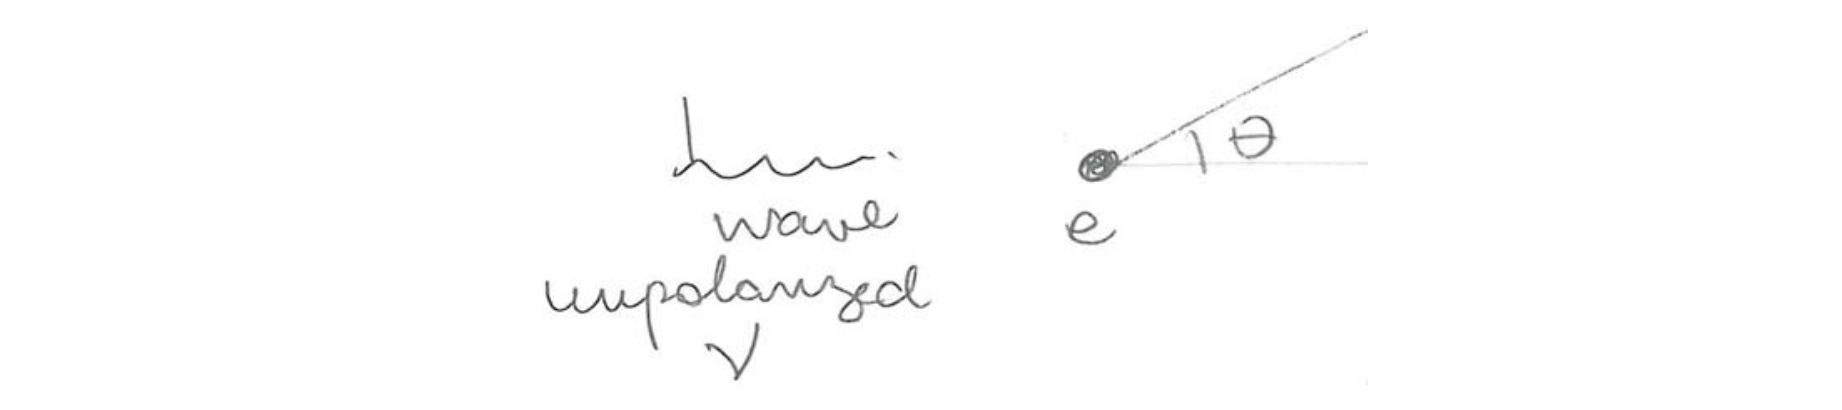 θ
wave
e
unpolarized
ν